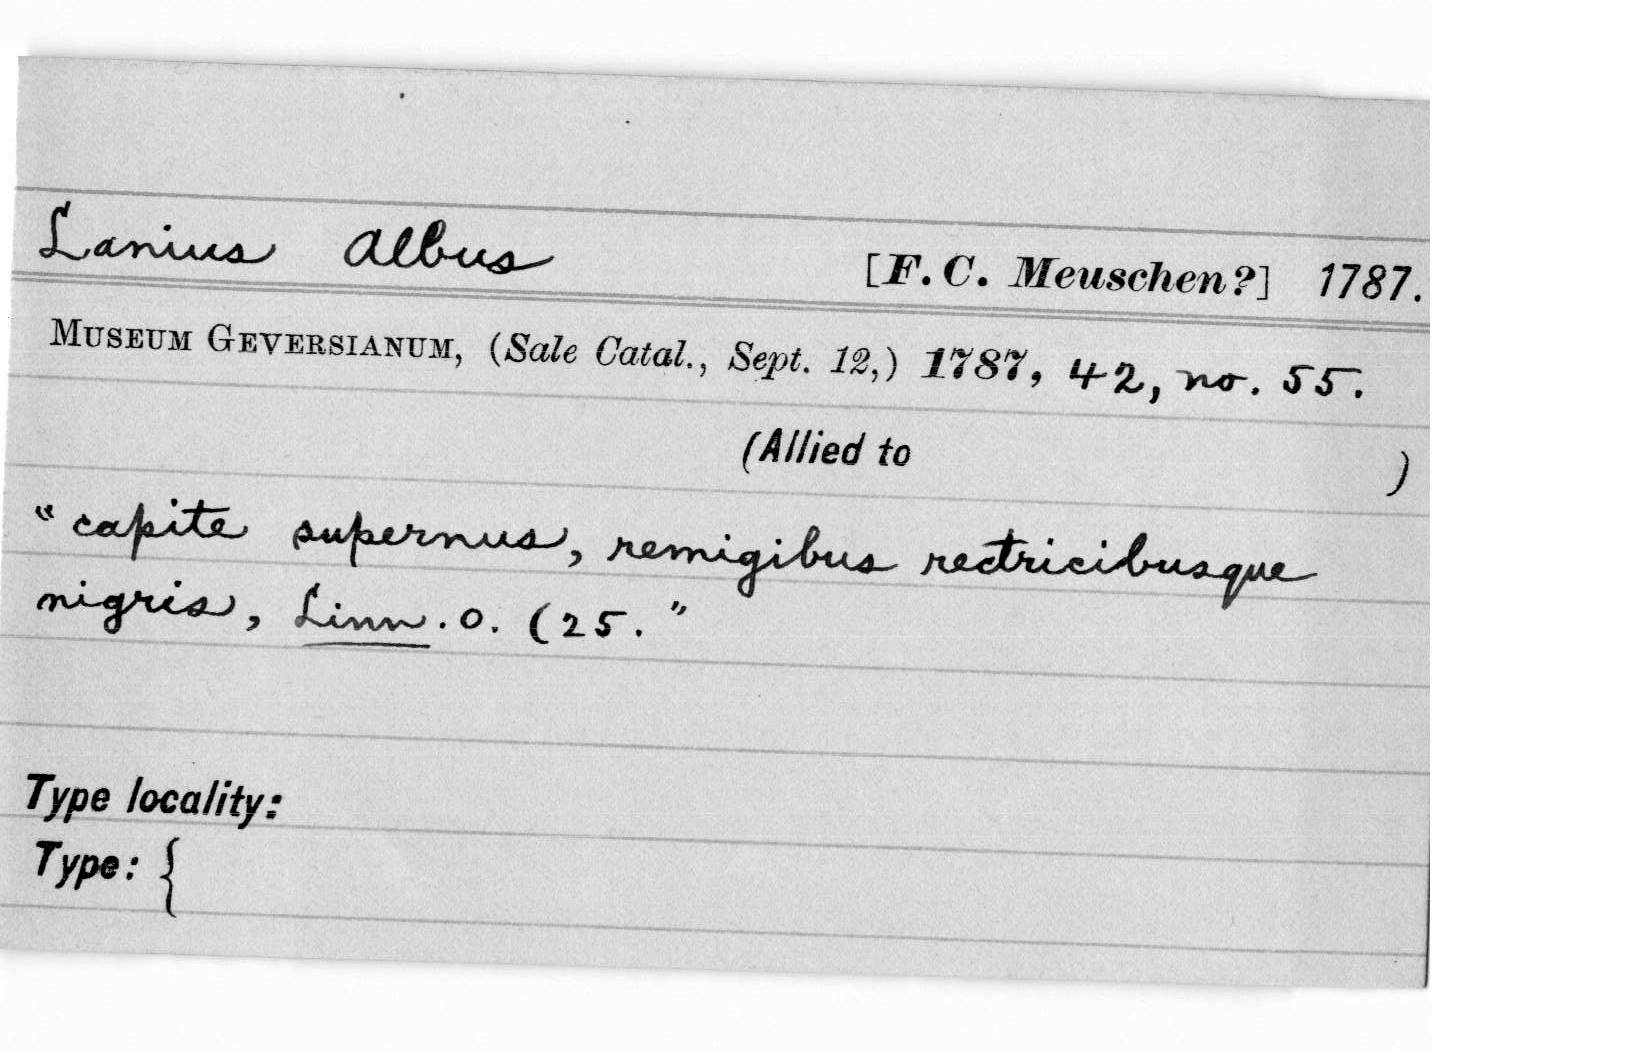 Lanius Albus [F. C. Meuschen?] 1787.
MUSEUM GEVERSIANUM, (Sale Catal., Sept. 12,) 1787, 42, no. 55.
(Allied to )
"capite supernus, remigibus rectricibusque
nigris, Linn. o. (25."
Type locality:
Type: {